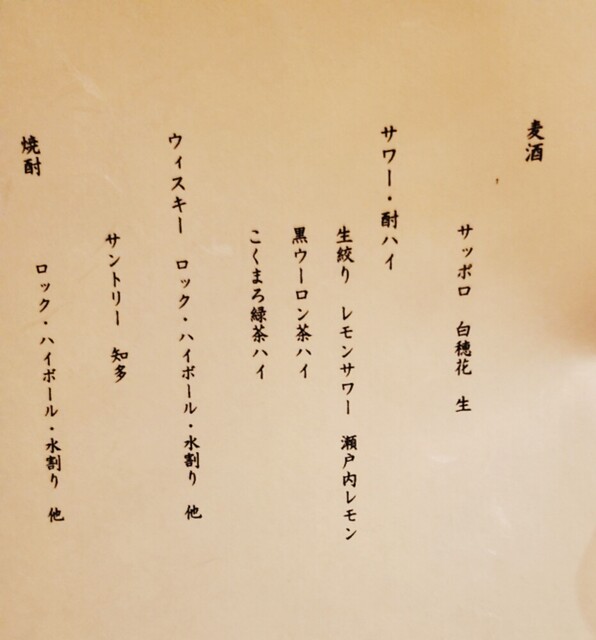 麦酒
サッポロ 白穂花 生
サワー・酎ハイ
生絞り レモンサワー 瀬戸内レモン
黒ウーロン茶ハイ
こくまろ緑茶ハイ
ウィスキー ロック・ハイボール・水割り 他
サントリー 知多
焼酎
ロック・ハイボール・水割り 他